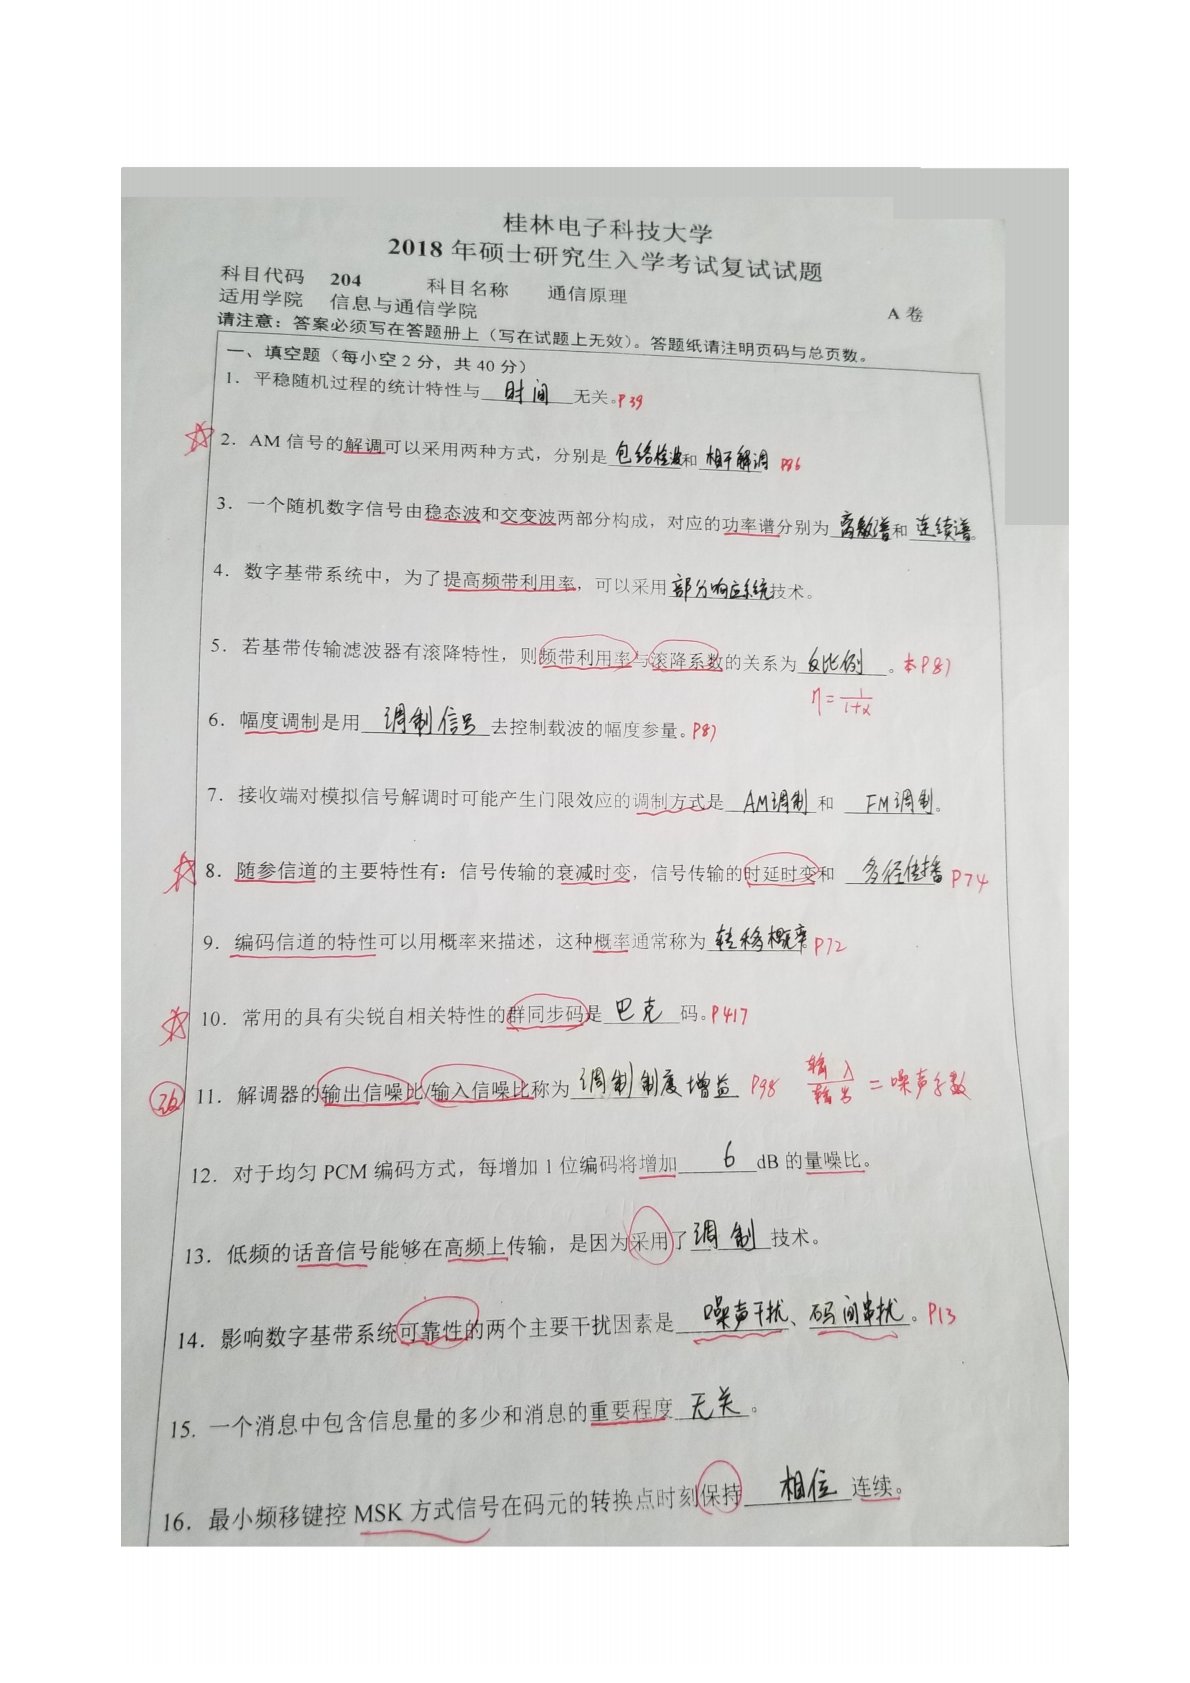 桂林电子科技大学
2018 年硕士研究生入学考试复试试题
科目代码 204 科目名称 通信原理
适用学院 信息与通信学院 A 卷
请注意：答案必须写在答题册上（写在试题上无效）。答题纸请注明页码与总页数。
一、填空题（每小空 2 分，共 40 分）
1．平稳随机过程的统计特性与 时间 无关。P39
2．AM 信号的解调可以采用两种方式，分别是 包络检波 和 相干解调 P86
3．一个随机数字信号由稳态波和交变波两部分构成，对应的功率谱分别为 离散谱 和 连续谱。
4．数字基带系统中，为了提高频带利用率，可以采用 部分响应系统 技术。
5．若基带传输滤波器有滚降特性，则频带利用率与滚降系数的关系为 反比例 。本P87
η=1/(1+α)
6．幅度调制是用 调制信号 去控制载波的幅度参量。P87
7．接收端对模拟信号解调时可能产生门限效应的调制方式是 AM调制 和 FM调制。
8．随参信道的主要特性有：信号传输的衰减时变，信号传输的时延时变和 多径传播 P74
9．编码信道的特性可以用概率来描述，这种概率通常称为 转移概率 P72
10．常用的具有尖锐自相关特性的群同步码是 巴克 码。P417
11．解调器的输出信噪比/输入信噪比称为 调制制度增益 P98 输入/输出 = 噪声系数
12．对于均匀 PCM 编码方式，每增加 1 位编码将增加 6 dB 的量噪比。
13．低频的话音信号能够在高频上传输，是因为采用了 调制 技术。
14．影响数字基带系统可靠性的两个主要干扰因素是 噪声干扰、码间串扰 。P13
15．一个消息中包含信息量的多少和消息的重要程度 无关 。
16．最小频移键控 MSK 方式信号在码元的转换点时刻保持 相位 连续。